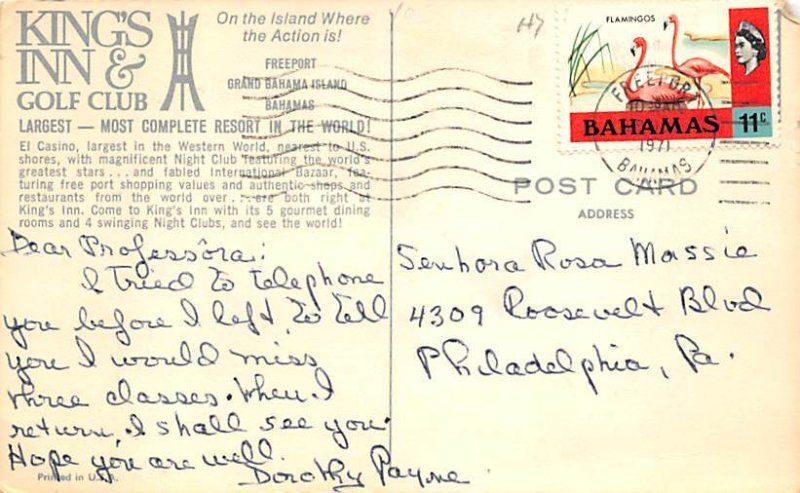 KING'S
INN &
GOLF CLUB
On the Island Where
the Action is!
FREEPORT
GRAND BAHAMA ISLAND
BAHAMAS
LARGEST — MOST COMPLETE RESORT IN THE WORLD!
El Casino, largest in the Western World, nearest to U.S.
shores, with magnificent Night Club featuring the world's
greatest stars . . . and fabled International Bazaar, fea-
turing free port shopping values and authentic shops and
restaurants from the world over . . . are both right at
King's Inn. Come to King's Inn with its 5 gourmet dining
rooms and 4 swinging Night Clubs, and see the world!
Dear Professôra:
I tried to telephone
you before I left, to tell
you I would miss
three classes. When I
return, I shall see you.
Hope you are well.
Dorothy Payne
Printed in U.S.A.
FLAMINGOS
BAHAMAS 11c
FREEPORT
1971
BAHAMAS
POST CARD
ADDRESS
Senhora Rosa Massie
4309 Roosevelt Blvd
Philadelphia, Pa.